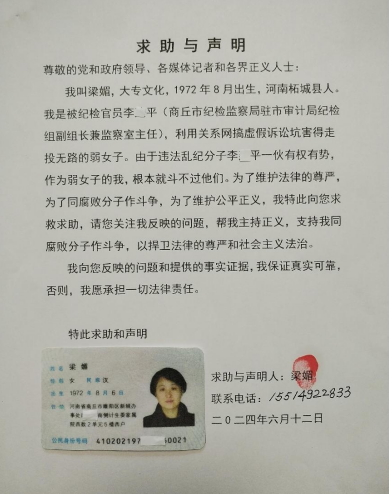 求助与声明
尊敬的党和政府领导、各媒体记者和各界正义人士：
我叫梁媚，大专文化，1972年8月出生，河南柘城县人。
我是被纪检官员李 平（商丘市纪检监察局驻市审计局纪检
组副组长兼监察室主任），利用关系网搞虚假诉讼坑害得走
投无路的弱女子。由于违法乱纪分子李 平一伙有权有势，
作为弱女子的我，根本就斗不过他们。为了维护法律的尊严，
为了同腐败分子作斗争，为了维护公平正义，我特此向您求
救求助，请您关注我反映的问题，帮我主持正义，支持我同
腐败分子作斗争，以捍卫法律的尊严和社会主义法治。
我向您反映的问题和提供的事实证据，我保证真实可靠，
否则，我愿承担一切法律责任。
特此求助和声明
姓名 梁媚
性别 女 民族 汉
出生 1972年8月6日
住址 河南省商丘市睢阳区新城办
公民身份号码 410202197 0021
求助与声明人：梁媚
联系电话：15514922833
二０二四年六月十二日